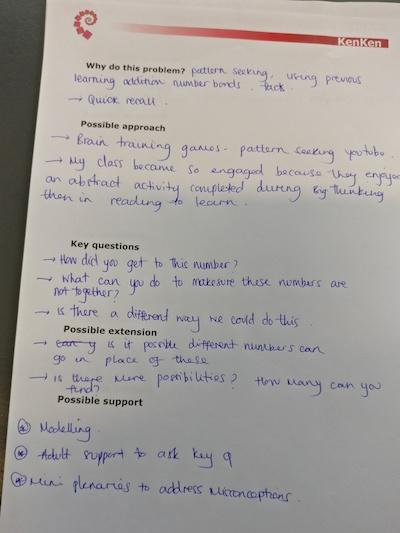 KenKen
Why do this problem? pattern seeking, using previous
learning addition number bonds. facts.
→ Quick recall.
Possible approach
→ Brain training games - pattern seeking youtube.
→ My class became so engaged because they enjoyed
an abstract activity completed during Big Thinking
then in reading to learn.
Key questions
→ How did you get to this number?
→ What can you do to makesure these numbers are
not together?
→ Is there a different way we could do this.
Possible extension
→ can y Is it possible different numbers can
go in place of these
→ Is there more possibilities? How many can you
find?
Possible support
* Modelling.
* Adult support to ask key q
* Mini plenaries to address misconceptions.